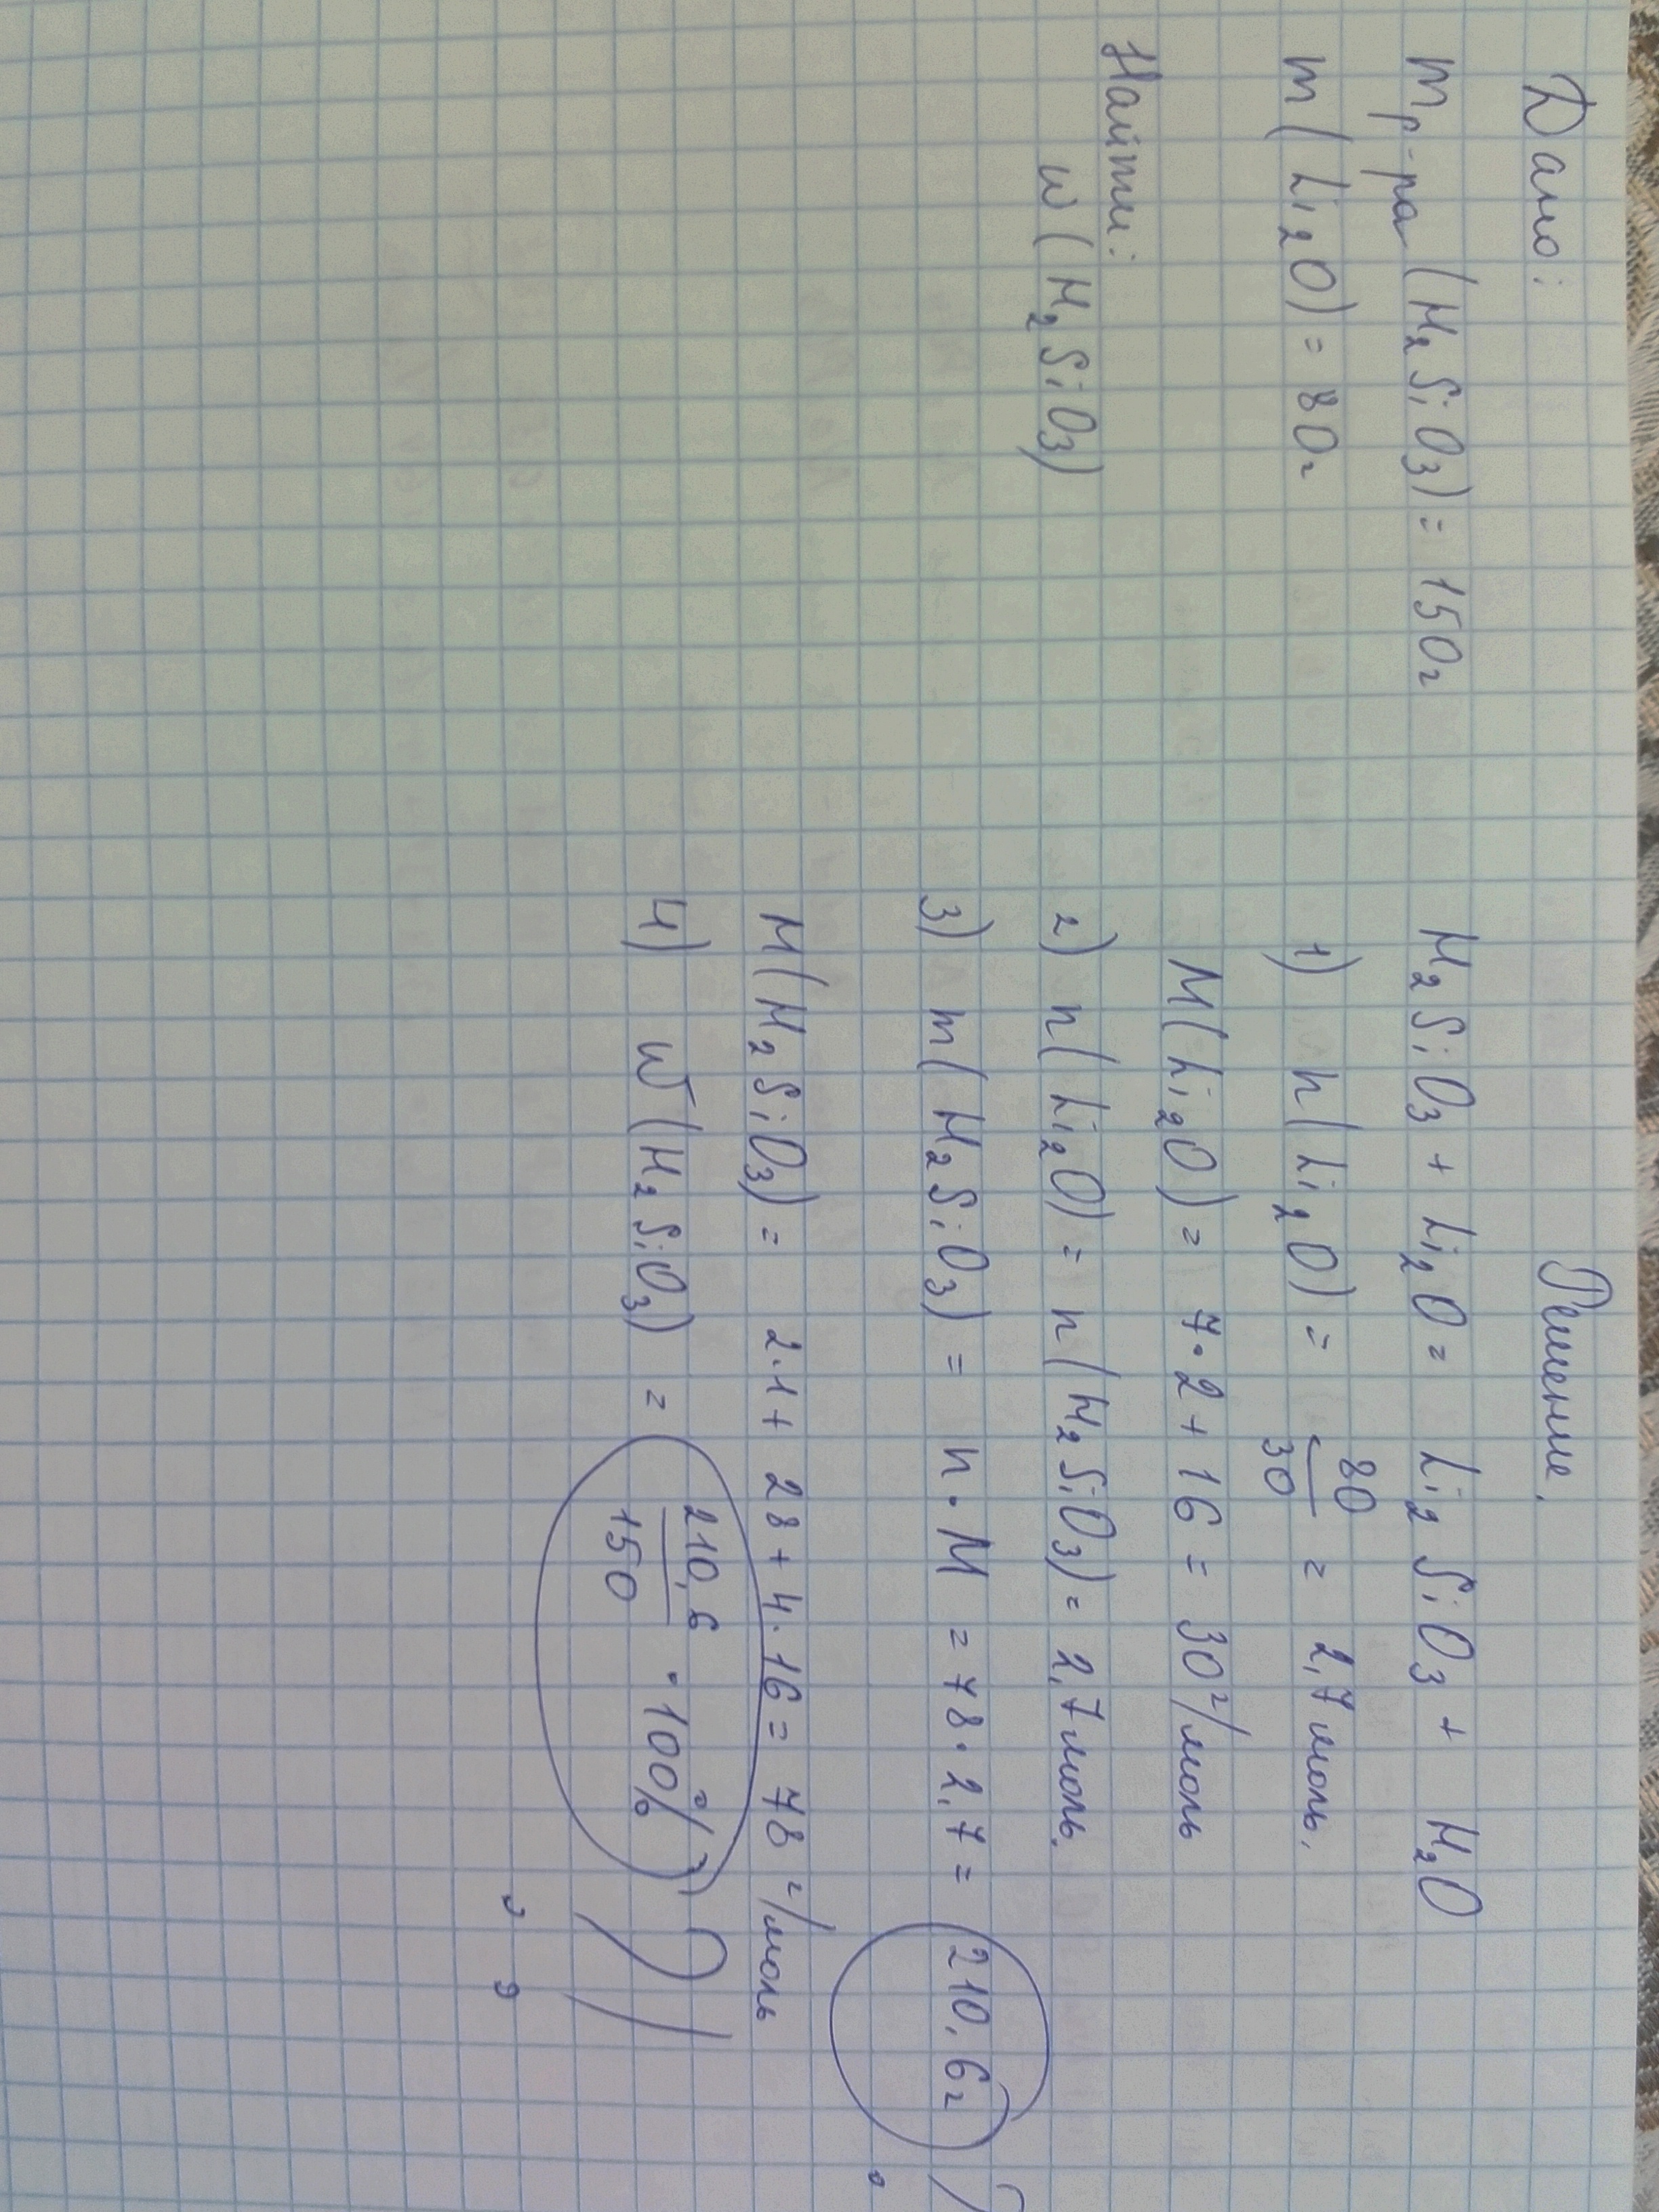 Дано:
mр-ра (H2SiO3) = 150г
m(Li2O) = 80г
Найти:
w(H2SiO3)
Решение.
H2SiO3 + Li2O = Li2SiO3 + H2O
1) n(Li2O) = 80/30 = 2,7 моль.
M(Li2O) = 7·2 + 16 = 30 г/моль
2) n(Li2O) = n(H2SiO3) = 2,7 моль.
3) m(H2SiO3) = n·M = 78·2,7 = 210,6г ?
M(H2SiO3) = 2·1 + 28 + 4·16 = 78 г/моль
4) W(H2SiO3) = 210,6/150 · 100% ?!